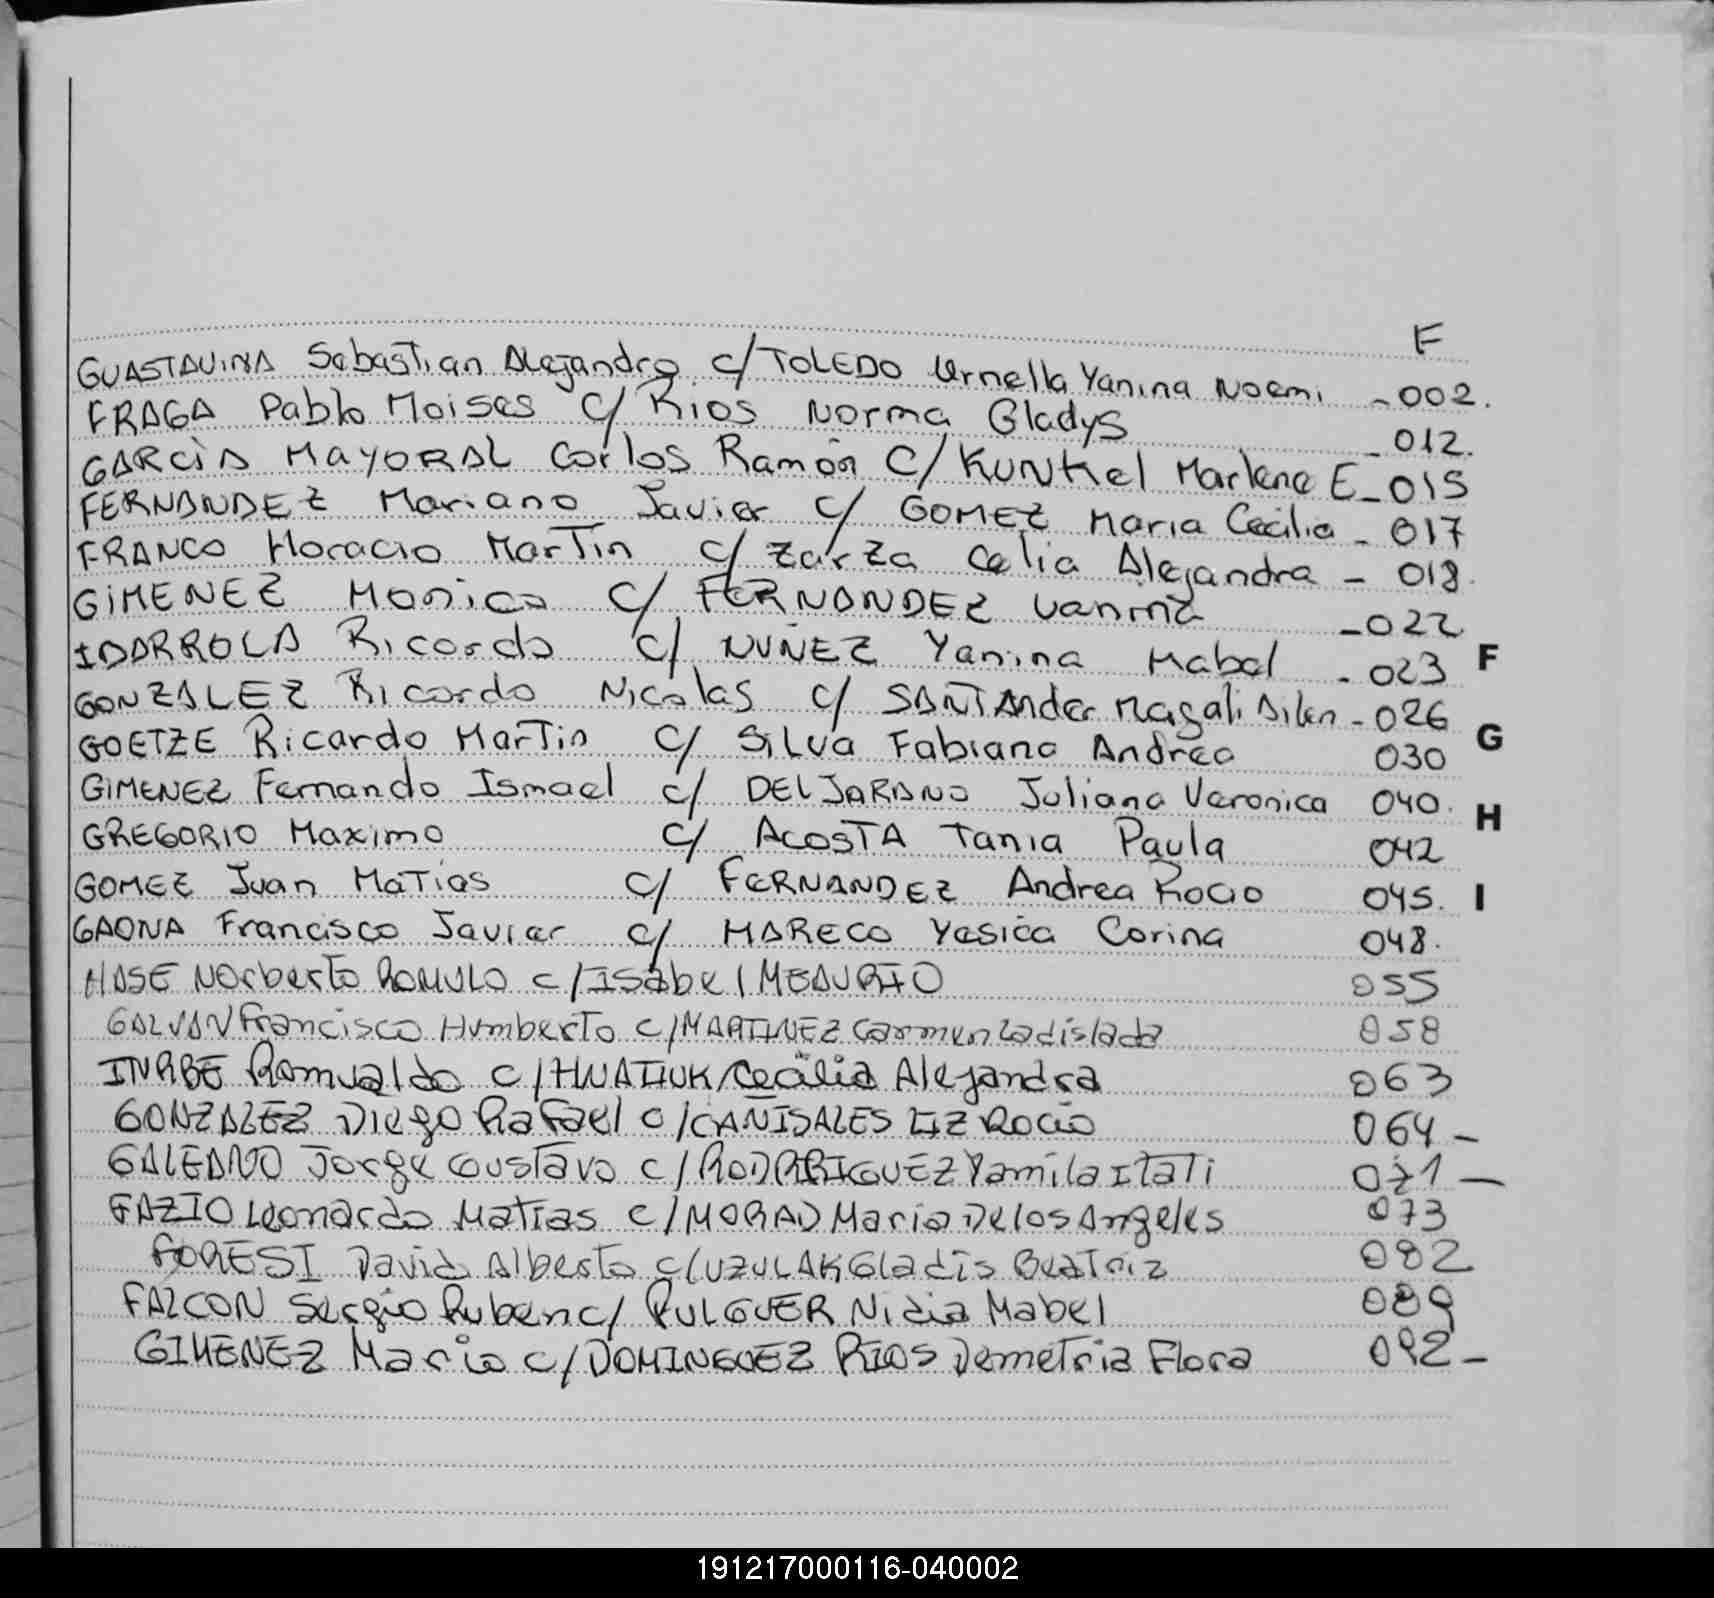 F
GUASTAVINA Sebastian Alejandro c/ TOLEDO Urnella Yanina Noemi - 002.
FRAGA Pablo Moises c/ Rios Norma Gladys - 012.
GARCÍA MAYORAL Carlos Ramón c/ KUNKel Marlene E - 015
FERNANDEZ Mariano Javier c/ GOMEZ Maria Cecilia - 017
FRANCO Horacio Martin c/ Zarza Celia Alejandra - 018.
GIMENEZ Monica c/ FERNANDEZ Vanina - 022
IBARROLA Ricardo c/ NUÑEZ Yanina Mabel - 023
F
GONZALEZ Ricardo Nicolas c/ SANTAnder Magali Ailen - 026
GOETZE Ricardo Martin c/ Silva Fabiana Andrea 030
G
GIMENEZ Fernando Ismael c/ DELJARANO Juliana Veronica 040.
H
GREGORIO Maximo c/ ACOSTA Tania Paula 042
GOMEZ Juan Matias c/ FERNANDEZ Andrea Rocio 045.
I
GAONA Francisco Javier c/ MARECO Yesica Corina 048.
HASE Norberto ROMULO c/ Isabel 055
GALVAN Francisco Humberto c/ MARTINEZ Carmen Ladislada 058
ITURBE Romualdo c/ HNATIUK Cecilia Alejandra 063
GONZALEZ Diego Rafael c/ CAÑISALES LIZ Rocio 064 -
GALEANO Jorge Gustavo c/ RODRIGUEZ Yamila Itati 071 -
FAZIO Leonardo Matias c/ MORAD Maria De los Angeles 073
FORESI David Alberto c/ UZULAK Gladis Beatriz 082
FALCON Sergio Ruben c/ PULGUER Nidia Mabel 089
GIMENEZ Mario c/ DOMINGUEZ RIOS Demetria Flora 092 -
191217000116-040002